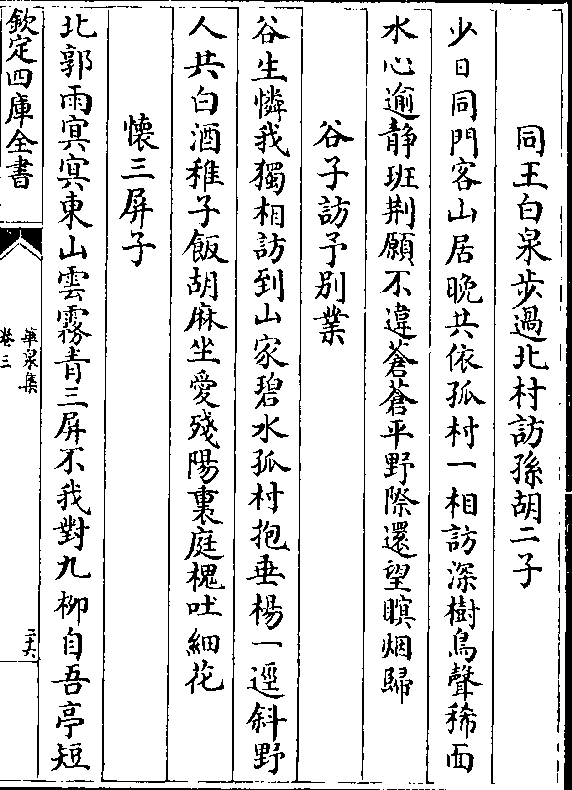 同王白泉步過北村訪孫胡二子
少日同門客山居晚共依孤村一相訪深樹鳥聲稀面
水心逾静班荆願不違蒼蒼平野際還望瞑烟歸
谷子訪予别業
谷生憐我獨相訪到山家碧水孤村抱垂楊一逕斜野
人共白酒稚子飯胡麻坐愛殘陽裏庭槐吐細花
懷三屏子
北郭雨冥冥東山雲霧青三屏不我對九柳自吾亭短
欽定四庫全書
華泉集
卷三
二六